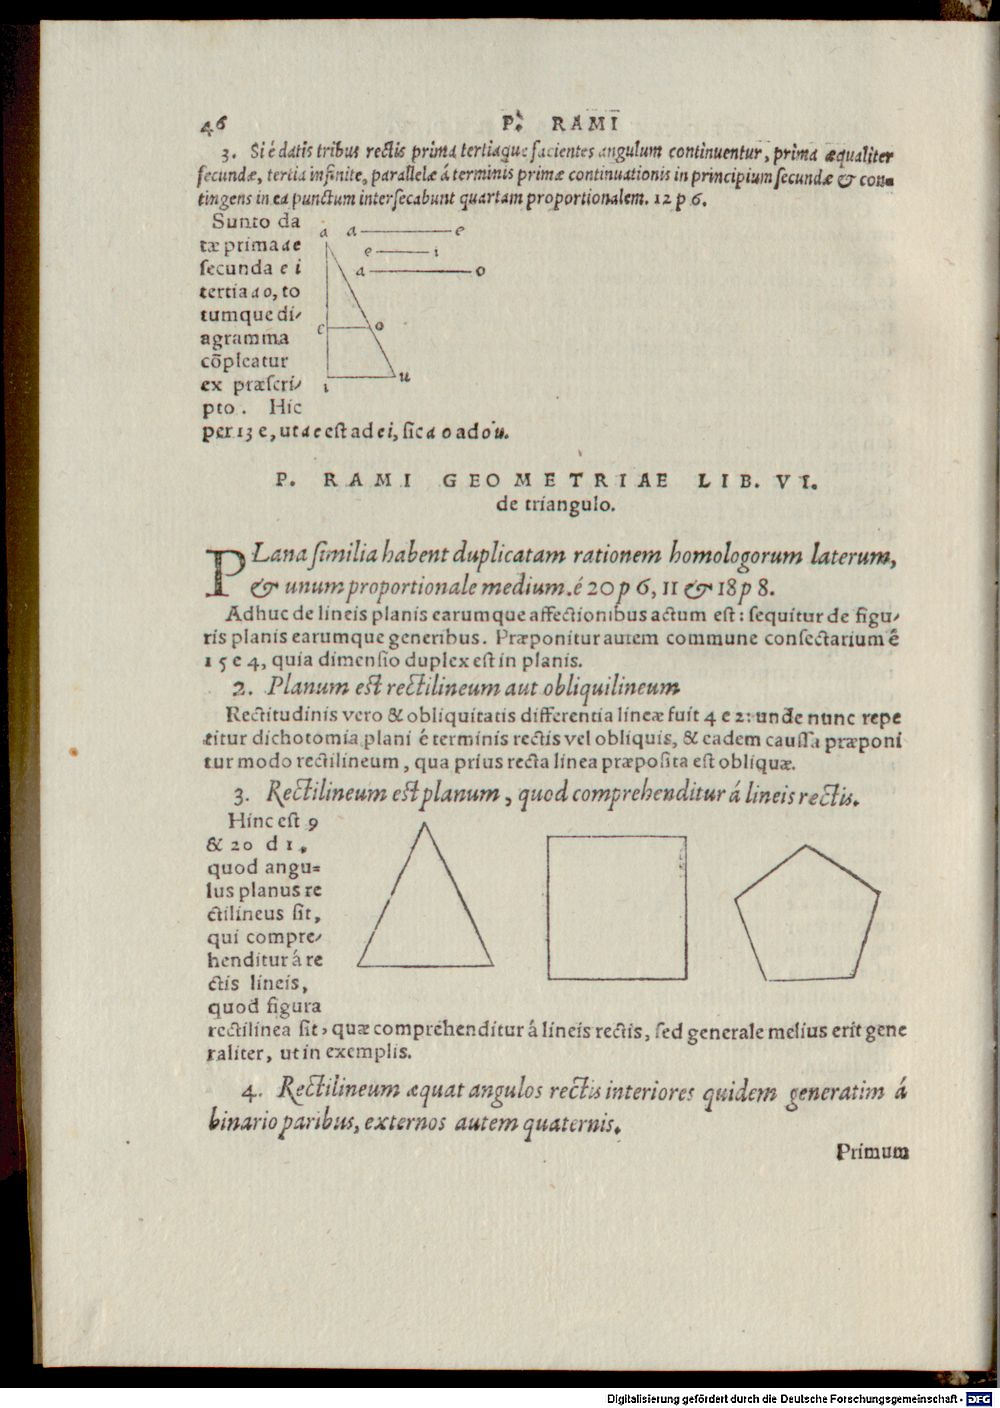 46
P. RAMI
3. Si é datis tribus rectis prima tertiaque facientes angulum continuentur, prima æqualiter
secundæ, tertia infinite, parallelæ á terminis primæ continuationis in principium secundæ & con=
tingens in ea punctum intersecabunt quartam proportionalem. 12 p 6.
Sunto da
tæ prima a e
secunda e i
tertia a o, to
tumque di-
agramma
cõpleatur
ex præscri-
pto. Hic
a a e
e i
a o
e o
i u
per 13 e, ut a e est ad e i, sic a o ad o u.
P. RAMI GEOMETRIAE LIB. VI.
de triangulo.
PLana similia habent duplicatam rationem homologorum laterum,
& unum proportionale medium. é 20 p 6, 11 & 18 p 8.
Adhuc de lineis planis earumque affectionibus actum est: sequitur de figu-
ris planis earumque generibus. Præponitur autem commune consectarium é
15 e 4, quia dimensio duplex est in planis.
2. Planum est rectilineum aut obliquilineum
Rectitudinis vero & obliquitatis differentia lineæ fuit 4 e 2: unde nunc repe
titur dichotomia plani é terminis rectis vel obliquis, & eadem caussa præponi
tur modo rectilineum, qua prius recta linea præposita est obliquæ.
3. Rectilineum est planum, quod comprehenditur á lineis rectis.
Hinc est 9
& 20 d 1,
quod angu=
lus planus re
ctilineus sit,
qui compre-
henditur á re
ctis lineis,
quod figura
rectilinea sit, quæ comprehenditur á lineis rectis, sed generale melius erit gene
raliter, ut in exemplis.
4. Rectilineum æquat angulos rectis interiores quidem generatim á
binario paribus, externos autem quaternis.
Primum
Digitalisierung gefördert durch die Deutsche Forschungsgemeinschaft - DFG